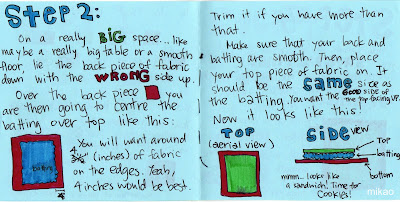 Step 2:
On a really BIG space... like
maybe a really big table or a smooth
floor, lie the back piece of fabric
down with the WRONG side up.
Over the back piece you
are then going to centre the
batting over top like this:
batting
4"
You will want around
4" (inches) of fabric
on the edges. Yeah,
4 inches would be best.
Trim it if you have more than
that.
Make sure that your back and
batting are smooth. Then, place
your top piece of fabric on. It
should be the same side as
the batting. You want the GOOD side of
the top facing UP.
Now it looks like this!
TOP
(aerial view)
Side view
top
batting
bottom
mmm... looks like
a sandwich! Time for
Cookies!
mikao